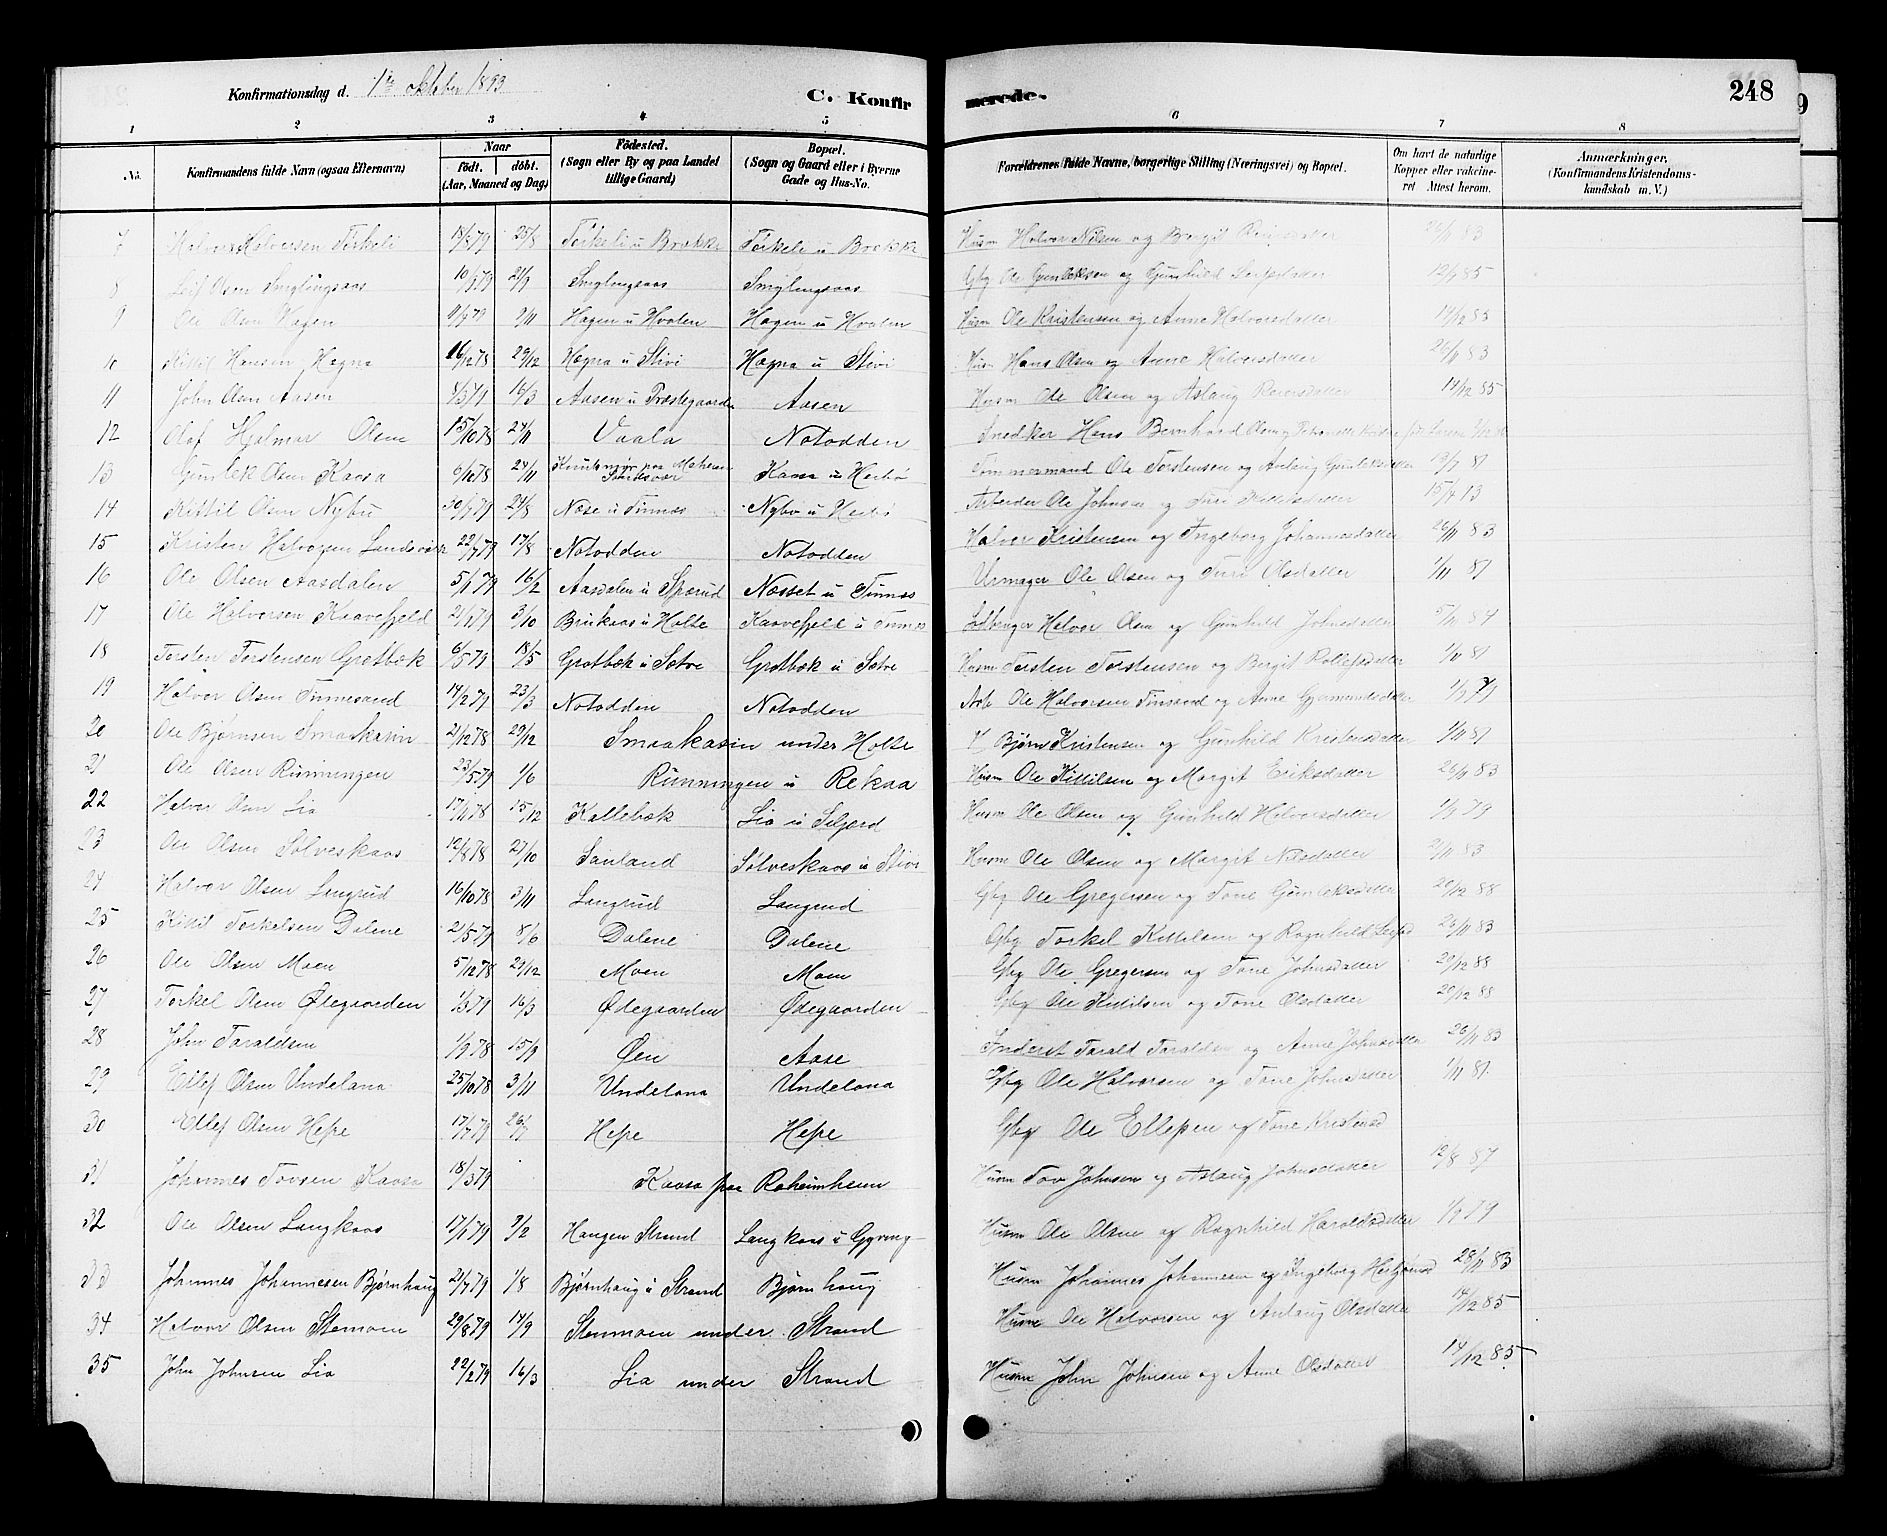 Konfirmationsdag d. 1te oktober 1893
C. Konfir
merede.
248
1 2 3 4 5 6 7 8
No. Konfirmandens fulde Navn (ogsaa Efternavn) Naar Födt. döbt. (Aar, Maaned og Dag) Födested. (Sogn eller By og paa Landet tillige Gaard) Bopæl. (Sogn og Gaard eller i Byerne Gade og Hus-No. Forældrenes fulde Navne, borgerlige Stilling (Næringsvei) og Bopæl. Om havt de naturlige Kopper eller vakcineret Attest herom. Anmærkninger, (Konfirmandens Kristendomskundskab m. V.)
7 Halvor Halvorsen Torkeli 18/5 79 25/8 Torkeli u Brække Torkeli u Brække Husm Halvor Nilsen og Bergit 26/11 83
8 Leif Olsen Smylingsaas 10/8 79 21/9 Smylingsaas Smylingsaas Gbg Ole Gunleksen og Gunhild 12/9 85
9 Ole Olsen Hagen 9/11 Hagen u Hvalen Hagen u Hvalen Husm Ole Kristensen og Anne Halvorsdatter 14/12 85
10 Kittil Hansen Hagna 16/12 78 29/12 Hagna u Stivi Hagna u Stivi Husm Hans Olsen og Anne Halvorsdatter 26/11 83
11 John Olsen Aasen 4/3 79 16/3 Aasen u Præstegaarden Aasen Husm Ole Olsen og Aslaug 14/12 85
12 Olaf Hjalmar Olsen 15/10 78 24/11 Vaala Notodden Snedker Hans Bernhard Olsen og
13 Gunlek Olsen Kaasa 6/12 78 24/11 Kaasa u Herbø Tømmermand Ole Torstensen og Anlaug Gunleksdatter 13/7 81
14 Kittil Olsen Nybu 30/7 79 24/8 Næse u Tinnæs Nybu u Herbø Arbeider Ole Johnsen og Turi Kittilsdatter 15/4 13
15 Kristen Halvorsen Landsværk 22/7 79 17/8 Notodden Notodden Halvor Kristensen og Ingeborg Johannesdatter 26/11 83
16 Ole Olsen Aasdalen 5/1 79 16/2 Aasdalen u Spærud Næsset u Tinnæs Urmager Ole Olsen og Turi Olsdatter 1/11 81
17 Ole Halvorsen Kaavefjeld 21/1 79 3/10 Brinkaas u Holte Kaavefjeld u Tinnæs Halvor Olsen og Gunhild Johnsdatter 5/11 84
18 Torsten Torstensen Grotbæk 6/5 79 18/5 Grotbæk u Sætre Grotbæk u Sætre Husm Torsten Torstensen og Bergit Rollefsdatter 1/11 81
19 Halvor Olsen Tinnesand 14/2 79 23/3 Notodden Notodden Arb Ole Halvorsen Tinnsand og Anne Gjermundsdatter 1/9 79
20 Ole Bjørnsen Smaakasin 21/12 78 29/12 Smaakasin under Holte Bjørn Kristensen og Gunhild Kristensdatter 1/11 81
21 Ole Olsen Rünningen 23/5 79 1/6 Rünningen u Rekaa Husm Ole Kittilsen og Margit Eriksdatter 26/11 83
22 Halvor Olsen Lia 17/11 78 15/12 Kallebæk Lia u Seljord Husm Ole Olsen og Gunhild Halvorsdatter 1/9 79
23 Ole Olsen Sølveskaas 12/8 78 27/10 Sauland Sølveskaas u Stivi Husm Ole Olsen og Margit Nilsdatter 2/11 83
24 Halvor Olsen Langrud 16/10 78 3/11 Langrud Langrud Gbg Ole Gregersen og Tone Gunleksdatter 20/12 88
25 Kittil Torkelsen Dalene 21/5 79 8/6 Dalene Dalene Gbg Torkel Kittilsen og Ragnhild 26/11 83
26 Ole Olsen Moen 5/12 78 29/12 Moen Moen Gbg Ole Gregersen og Tone Johnsdatter 20/12 88
27 Torkel Olsen Ødegaarden 1/3 79 16/3 Ødegaarden Ødegaarden Gbg Ole Kittilsen og Tone Olsdatter 20/12 88
28 John Taraldsen 1/9 78 15/9 Øen Aase Inderst Tarald Taraldsen og Anne Johnsdatter 26/11 83
29 Ellef Olsen Undelana 25/10 78 3/11 Undelana Undelana Gbg Ole Halvorsen og Tone Johnsdatter 1/11 81
30 Ellef Olsen Hesse 17/7 79 26/7 Hesse Hesse Gbg Ole Ellefsen og Tone Kristensd
31 Johannes Tovsen Kaasa 18/3 79 Kaasa paa Raheimheien Husm Tov Johnsen og Aslaug Johnsdatter 12/8 87
32 Ole Olsen Langkaas 17/1 79 9/2 Haugen Strand Langkaas u Gyving Husm Ole Olsen og Ragnhild Haraldsdatter 1/9 79
33 Johannes Johannesen Bjørnhaug 21/7 79 1/8 Bjørnhaug u Strand Bjørnhaug Husm Johannes Johannesen og Ingeborg 28/11 83
34 Halvor Olsen Stemoen 29/8 79 14/9 Stenmoen under Strand Husm Ole Halvorsen og Anlaug Olsdatter 14/12 85
35 John Johnsen Lia 22/2 79 16/3 Lia under Strand Husm John Johnsen og Anne Olsdatter 14/12 85